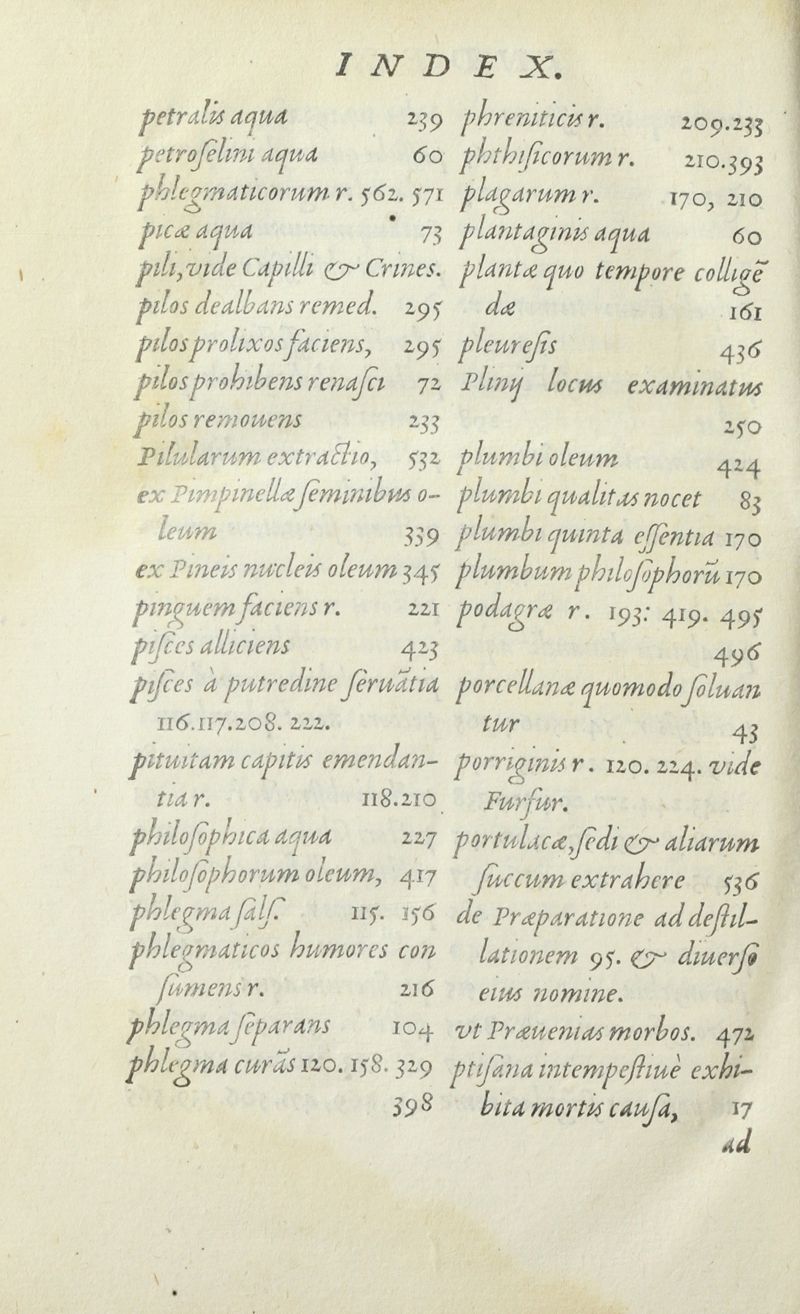 INDEX.
petralis aqua 239
petroſelini aqua 60
phlegmaticorum r. 562. 571
picæ aqua 73
pili, vide Capilli & Crines.
pilos dealbans remed. 295
pilos prolixos faciens, 295
pilos prohibens renaſci 72
pilos remouens 233
Pilularum extractio, 532
ex Pimpinellæ ſeminibus o-
leum 339
ex Pineis nucleis oleum 345
pinguem faciens r. 221
piſces alliciens 423
piſces à putredine ſeruātia
116.117.208. 222.
pituitam capitis emendan-
tia r. 118.210
philoſophica aqua 227
philoſophorum oleum, 417
phlegma ſalſ. 115. 156
phlegmaticos humores con
ſumens r. 216
phlegma ſeparans 104
phlegma curās 120. 158. 329
398
phreniticis r. 209.233
phthiſicorum r. 210.393
plagarum r. 170, 210
plantaginis aqua 60
plantæ quo tempore colligē
dæ 161
pleureſis 436
Plinij locus examinatus
250
plumbi oleum 424
plumbi qualitas nocet 83
plumbi quinta eſſentia 170
plumbum philoſophorū 170
podagræ r. 193: 419. 495
496
porcellanæ quomodo ſoluan
tur 43
porriginis r. 120. 224. vide
Furfur.
portulacæ, ſedi & aliarum
ſuccum extrahere 536
de Præparatione ad deſtil-
lationem 95. & diuerſo
eius nomine.
vt Præuenias morbos. 472
ptiſana intempeſtiuè exhi-
bita mortis cauſa, 17
ad